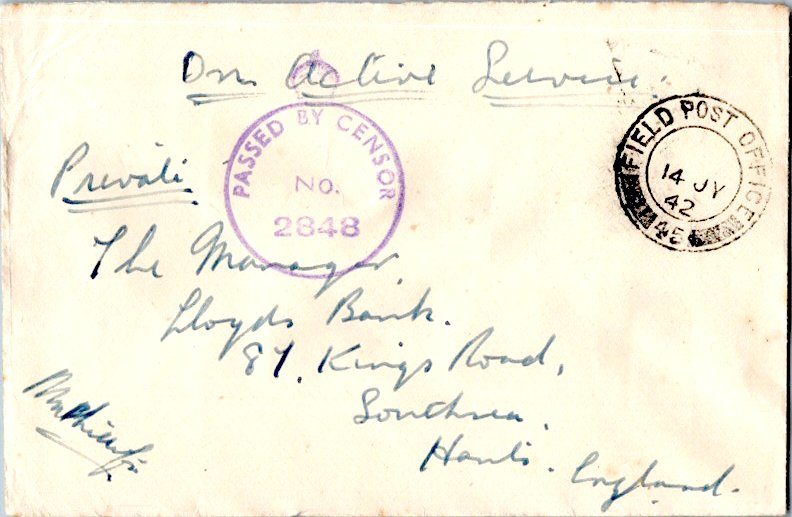 On Active Service.
PASSED BY CENSOR
No.
2848
FIELD POST OFFICE
14 JY
42
Private
The Manager,
Lloyds Bank.
87, Kings Road,
Southsea.
Hants. England.